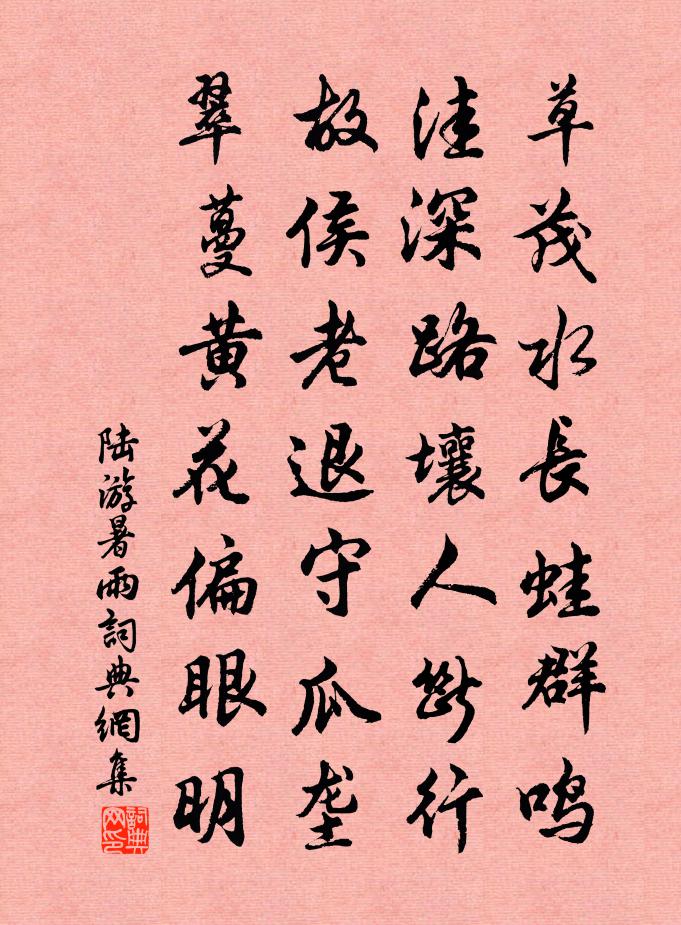 草茂水長蛙群鸣
洼深路壤人断行
故侯老退守瓜垄
翠蔓黄花偏眼明
陆游暑雨詞典網集
詞典网印